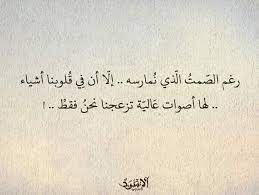 رغم الصّمتُ الّذي نُمارسه .. إلّا أن في قُلوبنا أشياء
.. لها أصوات عَاليَة تزعجنا نحنُ فقطُ .. !